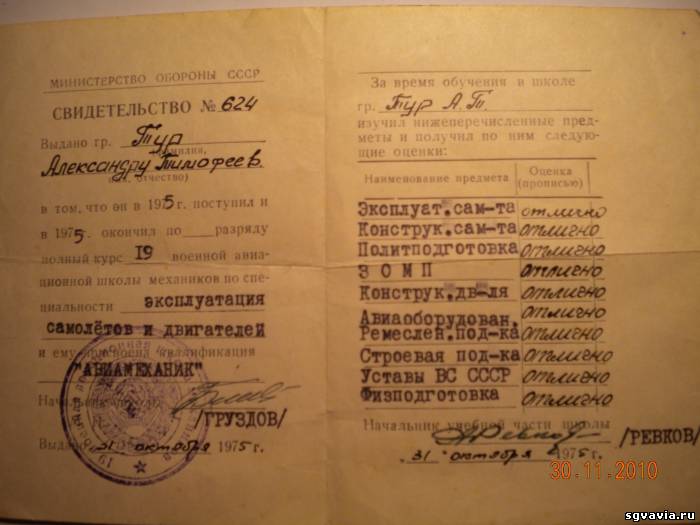 МИНИСТЕРСТВО ОБОРОНЫ СССР
СВИДЕТЕЛЬСТВО № 624
Выдано гр. Тур
Александру Тимофеев.
отчество)
в том, что он в 1975г. поступил и
в 1975. окончил по разряду
полный курс 19 военной авиа-
ционной школы механиков по спе-
циальности эксплуатация
самолётов и двигателей
и ему присвоена квалификация
"АВИАМЕХАНИК"
Начальник
/ГРУЗДОВ/
Выдано 31 октября 1975 г.
За время обучения в школе
гр. Тур А.Т.
изучил нижеперечисленные пред-
меты и получил по ним следую-
щие оценки:
Наименование предмета Оценка (прописью)
Эксплуат.сам-та отлично
Конструк.сам-та отлично
Политподготовка отлично
З О М П отлично
Конструк.дв-ля отлично
Авиаоборудован. отлично
Ремеслен.под-ка отлично
Строевая под-ка отлично
Уставы ВС СССР отлично
Физподготовка отлично
Начальник учебной части школы
/РЕВКОВ/
31 октября 1975 г.
30.11.2010
sgvavia.ru